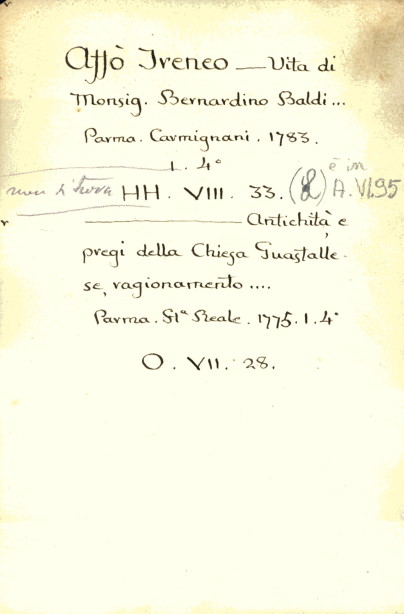 Affò Ireneo — Vita di
Monsig. Bernardino Baldi...
Parma. Carmignani. 1783.
1. 4°
non si trova HH. VIII. 33. (2) è in A. VI. 95
———— Antichità e
pregi della Chiesa Guastalle-
se, ragionamento ....
Parma. Stª Reale. 1775. 1. 4°
O. VII. 28.